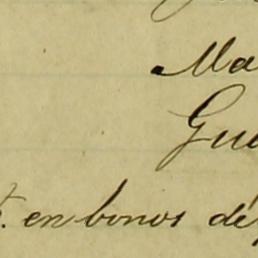 Ma
Gu
en bonos dé